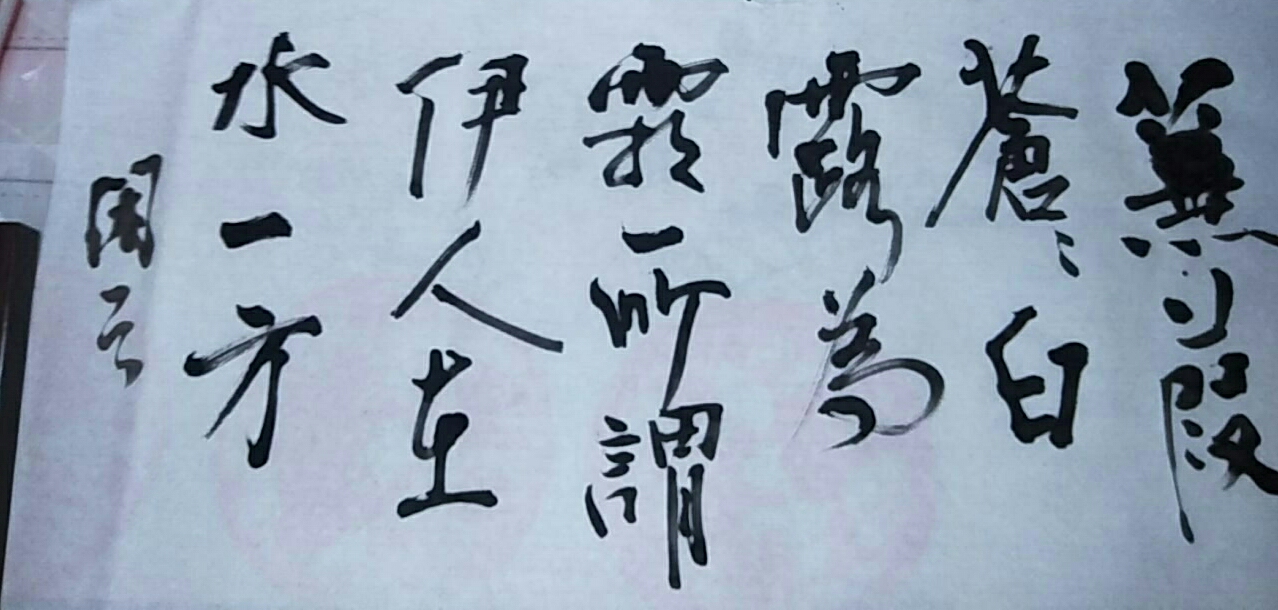 蒹葭
蒼〻白
露為
霜所謂
伊人在
水一方